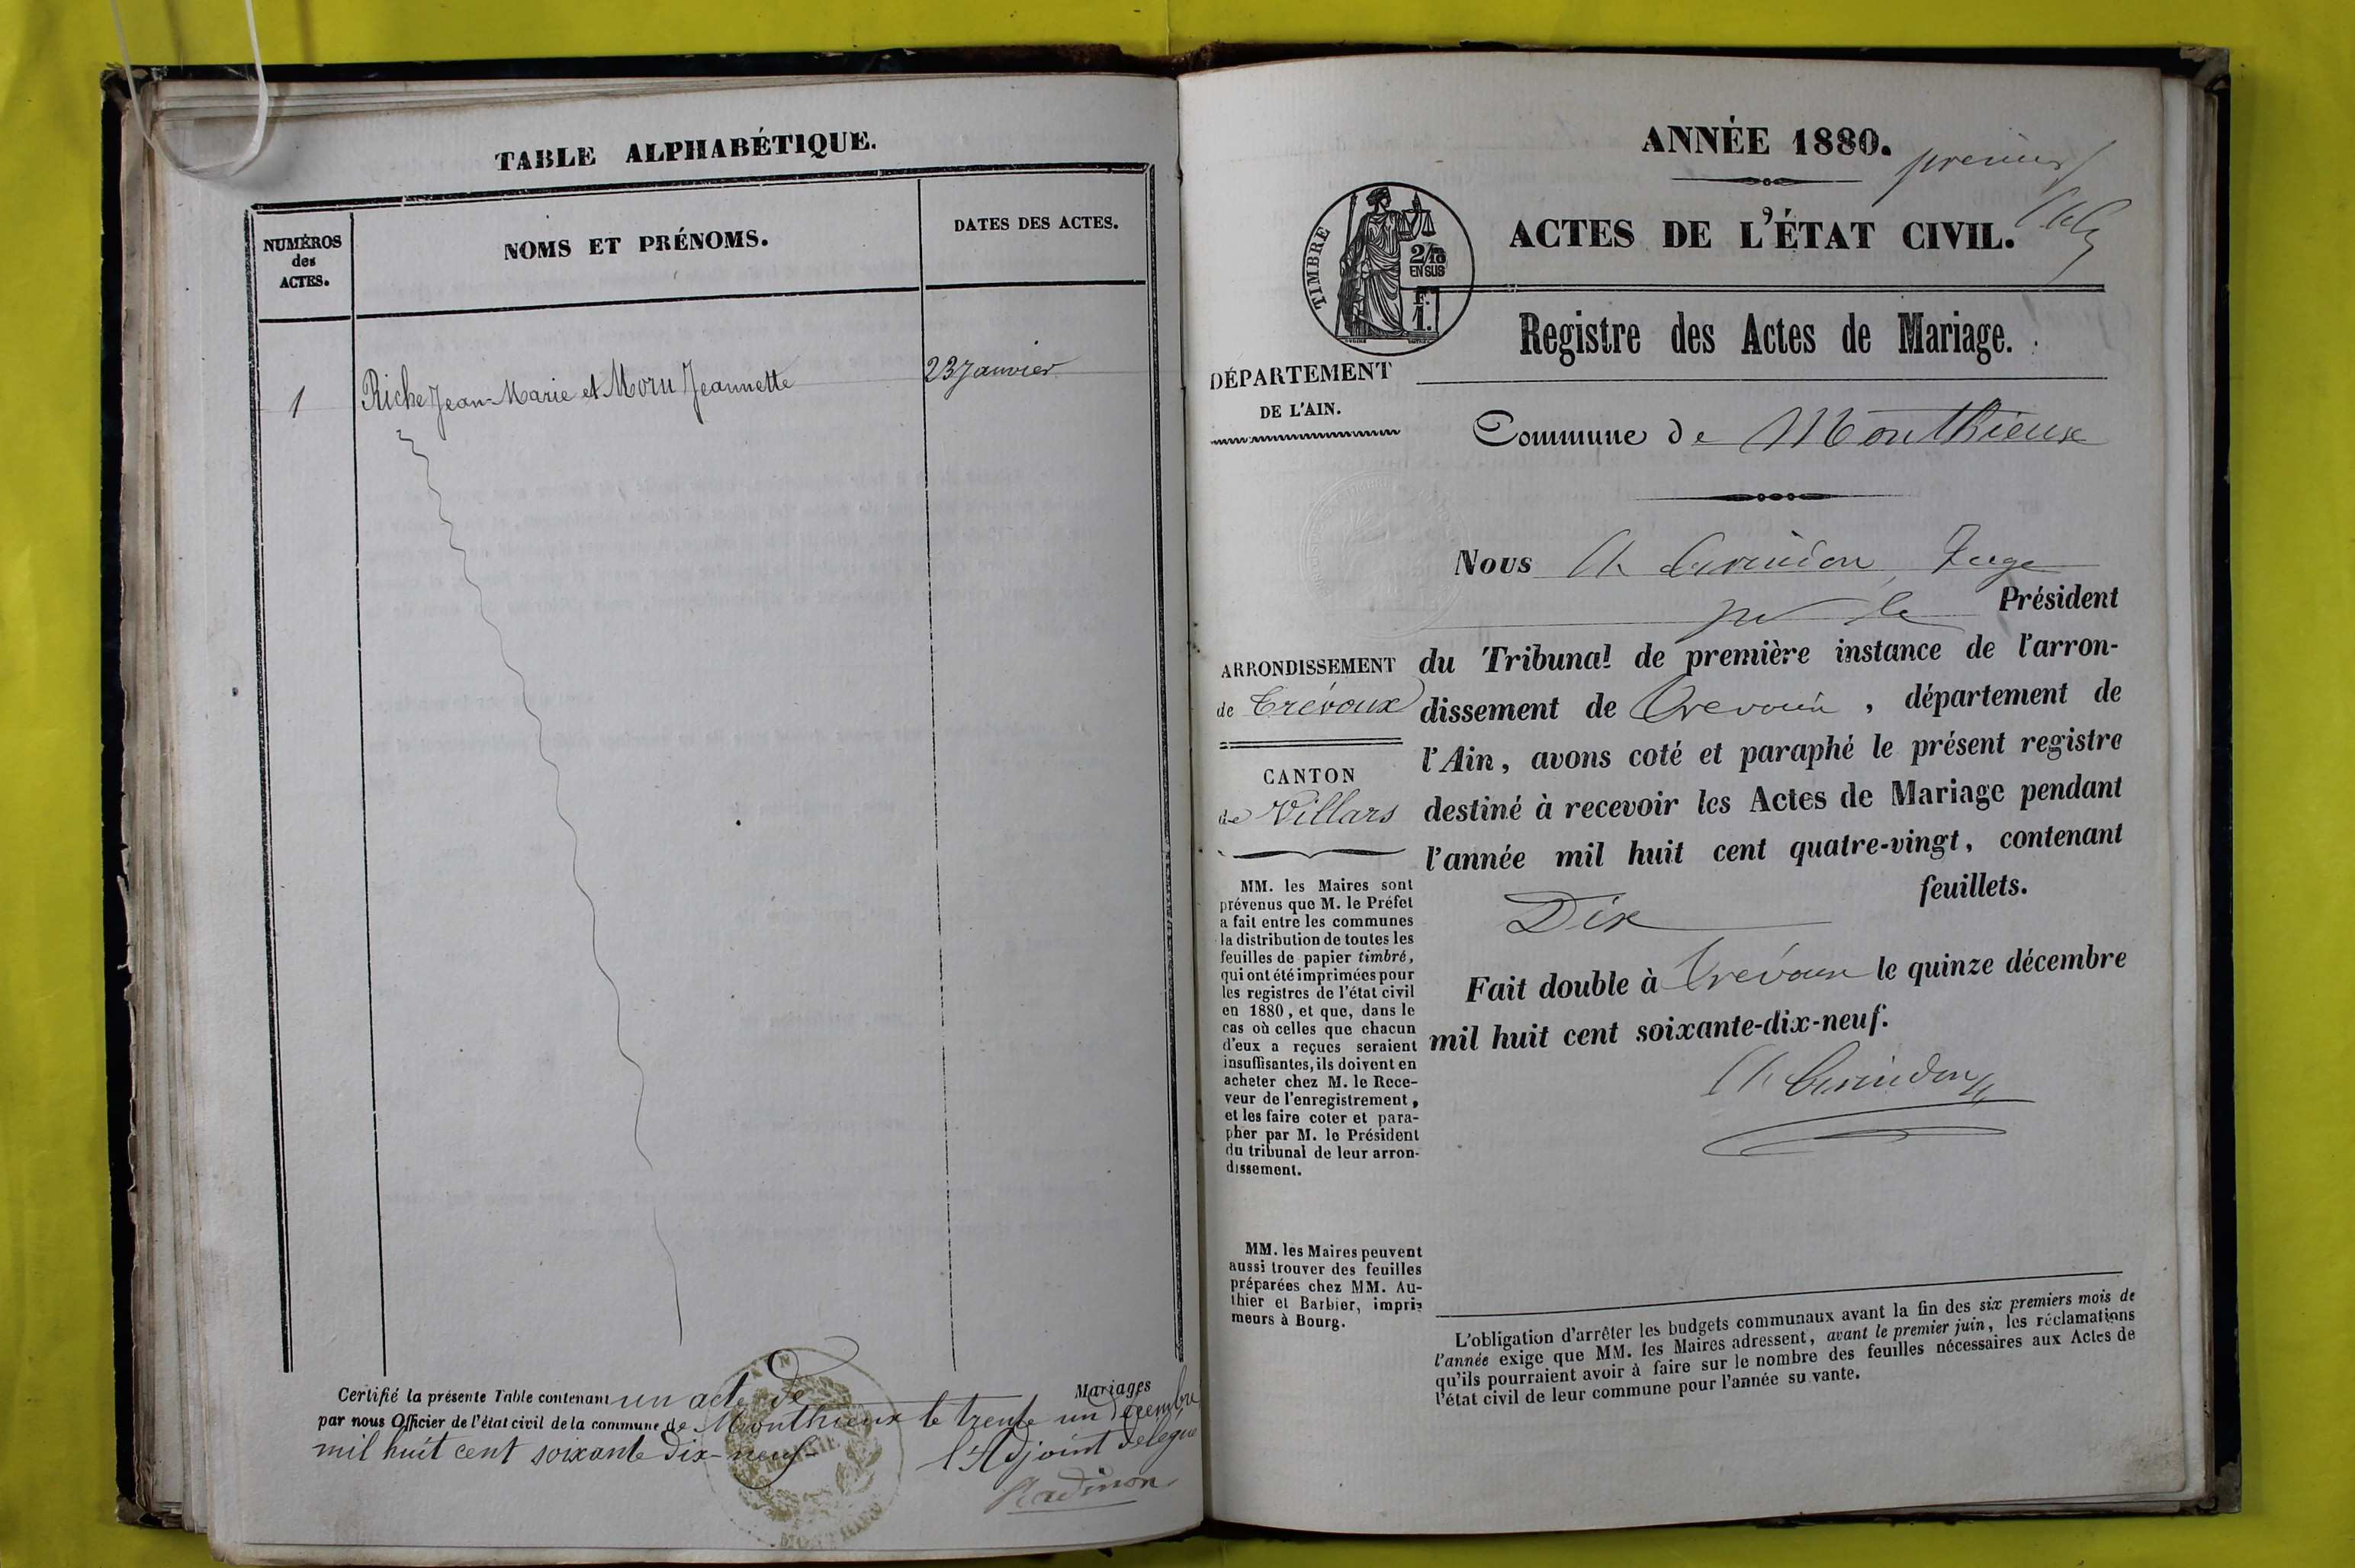 TABLE ALPHABÉTIQUE.
NUMÉROS
des
ACTES.
NOMS ET PRÉNOMS.
DATES DES ACTES.
1 Riche Jean-Marie et Moru Jeannette 23 Janvier
Certifié la présente Table contenant un acte de Mariages
par nous Officier de l'état civil de la commune de Monthieux le trente un Décembre
mil huit cent soixante dix-neuf
l'Adjoint délégué
ANNÉE 1880.
premier
ACTES DE L'ÉTAT CIVIL.
TIMBRE
2/10
EN SUS
F.
1.
Registre des Actes de Mariage.
DÉPARTEMENT
DE L'AIN.
Commune de Monthieux
Nous Juge
Président
du Tribunal de première instance de l'arron-
dissement de Trevoux, département de
l'Ain, avons coté et paraphé le présent registre
destiné à recevoir les Actes de Mariage pendant
l'année mil huit cent quatre-vingt, contenant
Dix feuillets.
Fait double à Trévoux le quinze décembre
mil huit cent soixante-dix-neuf.
ARRONDISSEMENT
de Trévoux
CANTON
de Villars
MM. les Maires sont
prévenus que M. le Préfet
a fait entre les communes
la distribution de toutes les
feuilles de papier timbré,
qui ont été imprimées pour
les registres de l'état civil
en 1880, et que, dans le
cas où celles que chacun
d'eux a reçues seraient
insuffisantes, ils doivent en
acheter chez M. le Rece-
veur de l'enregistrement,
et les faire coter et para-
pher par M. le Président
du tribunal de leur arron-
dissement.
MM. les Maires peuvent
aussi trouver des feuilles
préparées chez MM. Au-
thier et Barbier, impri-
meurs à Bourg.
L'obligation d'arrêter les budgets communaux avant la fin des six premiers mois de
l'année exige que MM. les Maires adressent, avant le premier juin, les réclamations
qu'ils pourraient avoir à faire sur le nombre des feuilles nécessaires aux Actes de
l'état civil de leur commune pour l'année su vante.